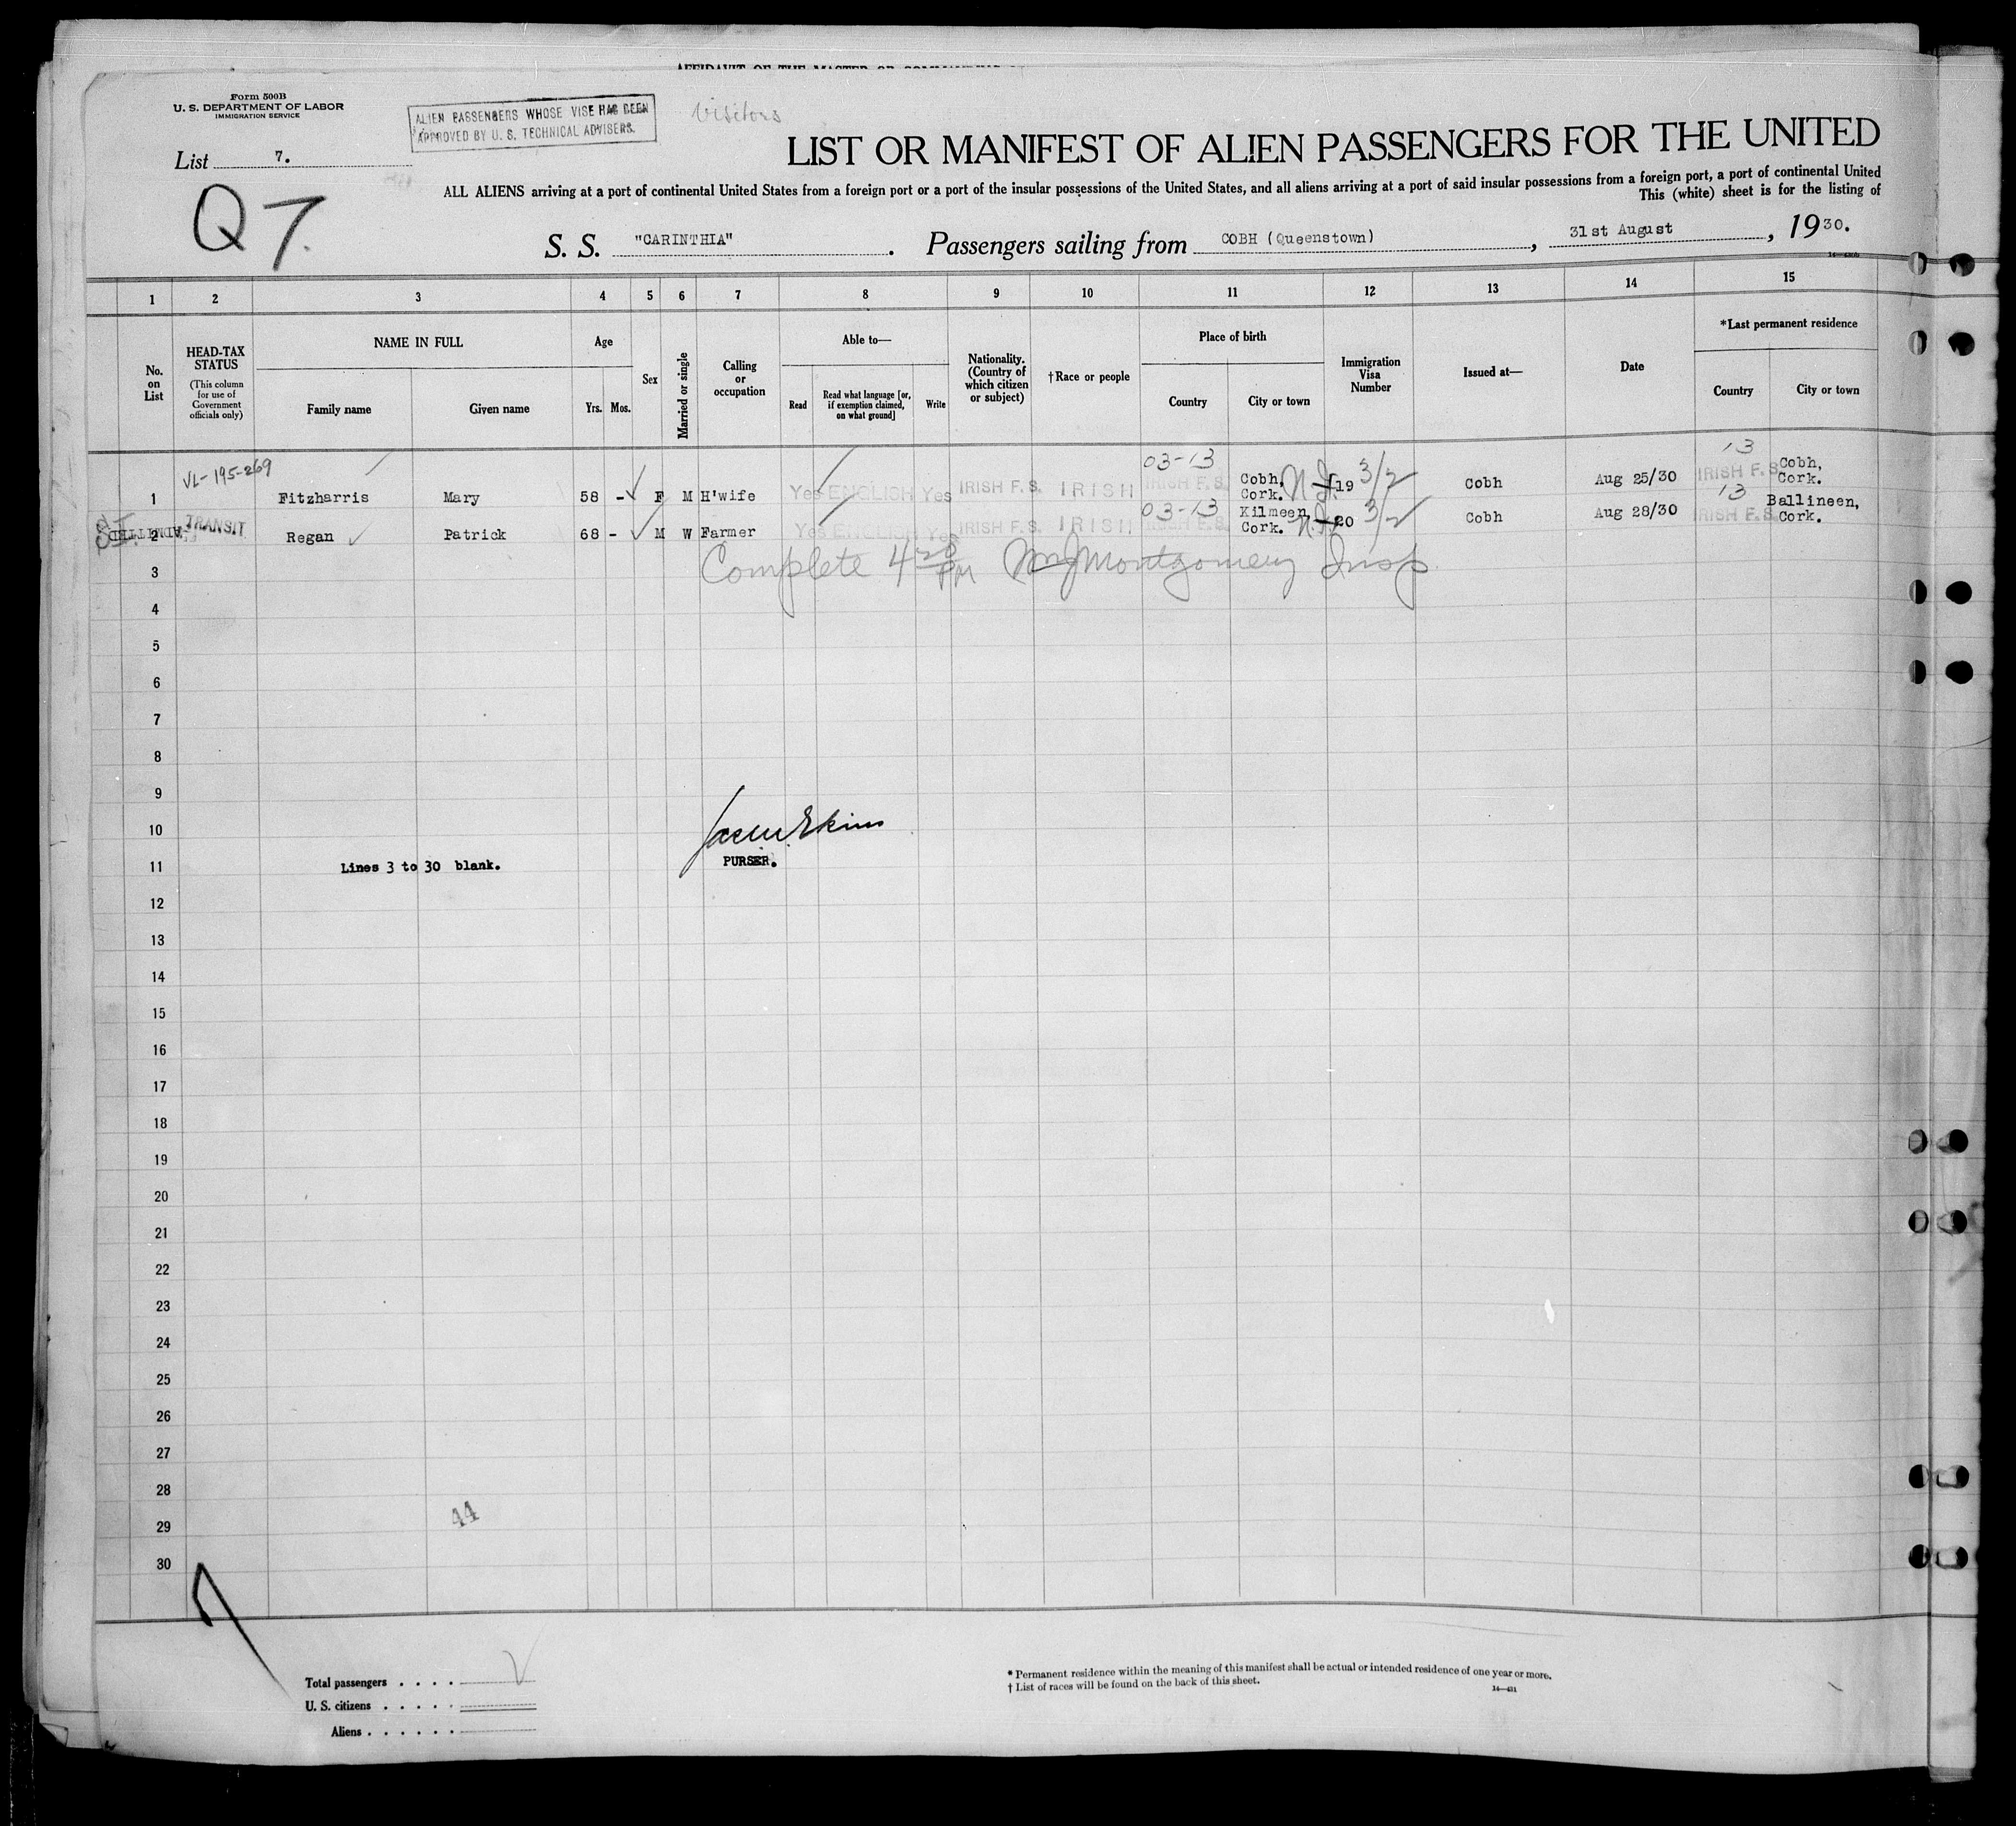 AFFIDAVIT OF THE MASTER OR COMMANDING
Form 500B
U. S. DEPARTMENT OF LABOR
IMMIGRATION SERVICE
ALIEN PASSENGERS WHOSE VISE HAS BEEN
APPROVED BY U. S. TECHNICAL ADVISERS.
Visitors
List 7.
Q7.
LIST OR MANIFEST OF ALIEN PASSENGERS FOR THE UNITED
ALL ALIENS arriving at a port of continental United States from a foreign port or a port of the insular possessions of the United States, and all aliens arriving at a port of said insular possessions from a foreign port, a port of continental United
This (white) sheet is for the listing of
S. S. "CARINTHIA". Passengers sailing from COBH (Queenstown), 31st August, 1930.
1 2 3 4 5 6 7 8 9 10 11 12 13 14 15
No. on List
HEAD-TAX STATUS
(This column for use of Government officials only)
NAME IN FULL
Family name
Given name
Age
Yrs. Mos.
Sex
Married or single
Calling or occupation
Able to—
Read
Read what language [or, if exemption claimed, on what ground]
Write
Nationality. (Country of which citizen or subject)
†Race or people
Place of birth
Country
City or town
Immigration Visa Number
Issued at—
Date
*Last permanent residence
Country
City or town
VL-195-269
03-13
13
1 Fitzharris Mary 58 - F M H'wife Yes ENGLISH Yes IRISH F. S. IRISH IRISH F. S. Cobh, Cork. 19 3/2 Cobh Aug 25/30 IRISH F. S. Cobh, Cork.
03-13
13
ADMITTED TRANSIT
2 Regan Patrick 68 - M W Farmer Yes ENGLISH Yes IRISH F. S. IRISH IRISH F. S. Kilmeen, Cork. 20 3/2 Cobh Aug 28/30 IRISH F. S. Ballineen, Cork.
Complete 4 20 PM Wm J Montgomery Insp.
3
4
5
6
7
8
9
10
PURSER.
11 Lines 3 to 30 blank.
12
13
14
15
16
17
18
19
20
21
22
23
24
25
26
27
28
44
29
30
Total passengers . . . .
U. S. citizens . . . . .
Aliens . . . . . .
* Permanent residence within the meaning of this manifest shall be actual or intended residence of one year or more.
† List of races will be found on the back of this sheet.
14—431